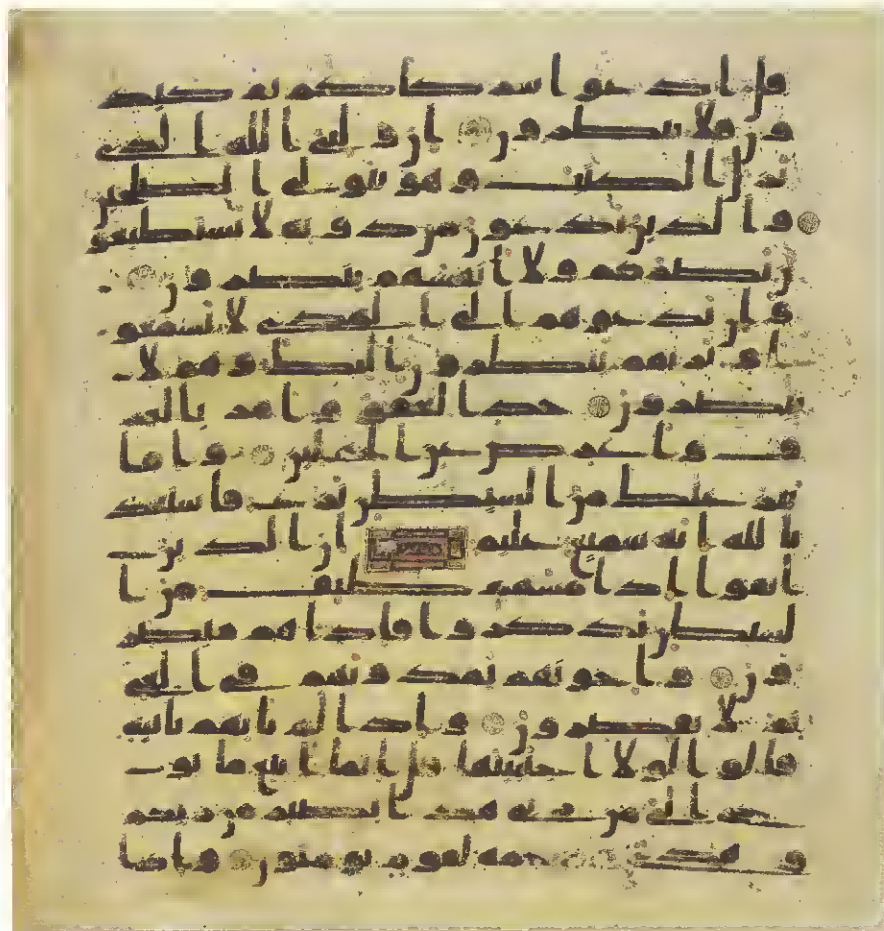 قل ادعوا شركاكم ثم كيد
ون فلا تنظرون ان وليى الله الذى
نزل الكتب وهو يتولى الصلحين
والذين تدعون من دونه لا يستطيعو
ن نصركم ولا انفسهم ينصرون
وان تدعوهم الى الهدى لا يسمعو
ا وتريهم ينظرون اليك وهم لا
يبصرون خذ العفو وامر بالعر
ف واعرض عن الجهلين واما
ينزغنك من الشيطن نزغ فاستعذ
بالله انه سميع عليم ان الذين
اتقوا اذا مسهم طيف من ا
لشيطن تذكروا فاذا هم مبصر
ون واخونهم يمدونهم فى الغى
ثم لا يقصرون واذا لم تاتهم باية
قالوا لولا اجتبيتها قل انما اتبع ما يو
حى الى من ربى هذا بصير من ربكم
وهدى ورحمة لقوم يومنون واذا